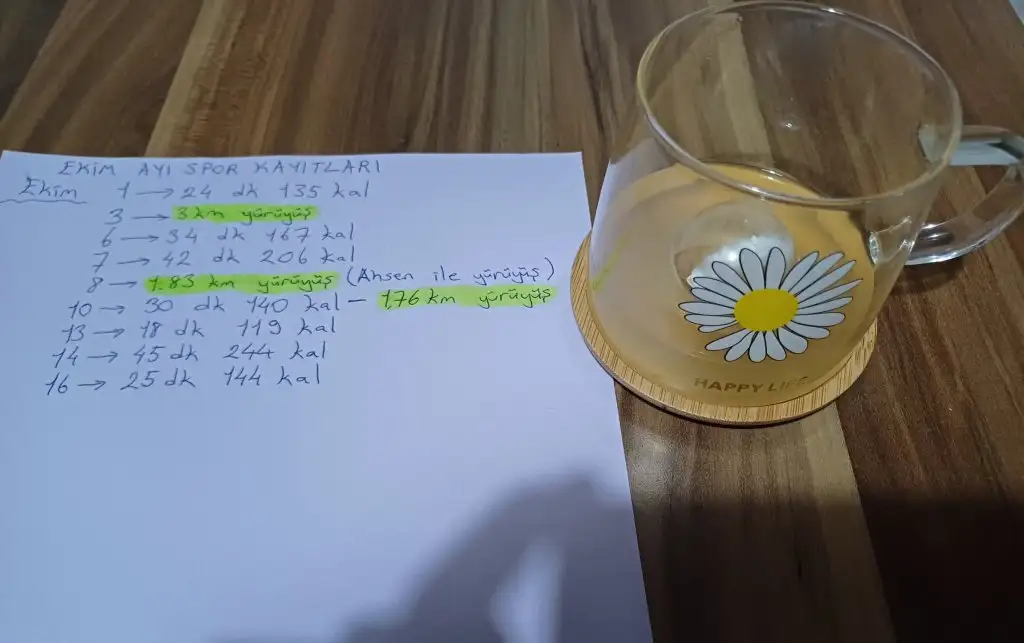 EKİM AYI SPOR KAYITLARI
Ekim 1 → 24 dk 135 kal
3 → 3 km yürüyüş
6 → 34 dk 167 kal
7 → 42 dk 206 kal
8 → 1.83 km yürüyüş (Ahsen ile yürüyüş)
10 → 30 dk 140 kal - 1,76 km yürüyüş
13 → 18 dk 119 kal
14 → 45 dk 244 kal
16 → 25 dk 144 kal
HAPPY LIFE